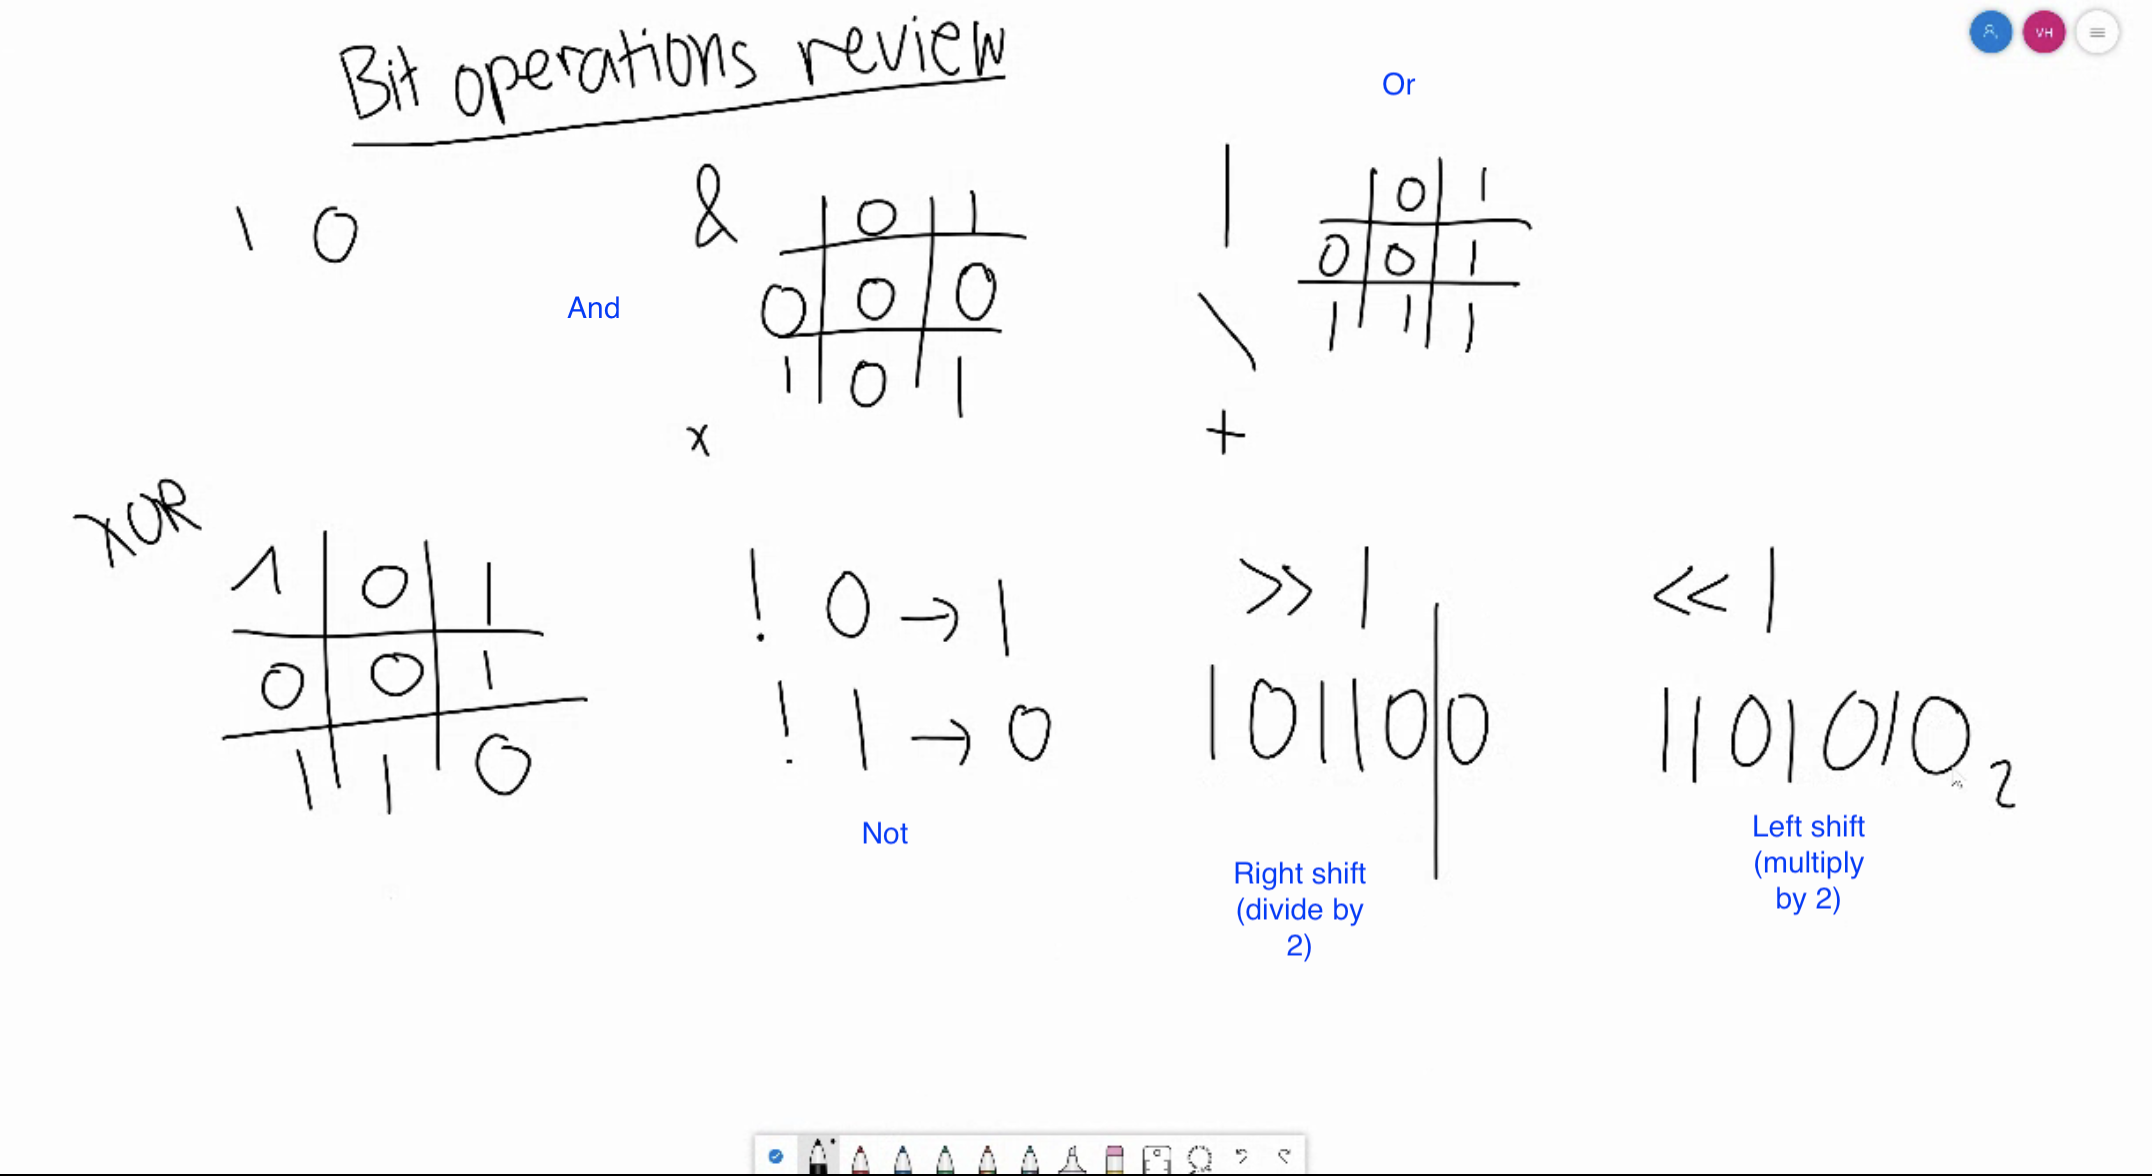 Bit operations review
VH
Or
1 0
&
0 1
0 0 0
1 0 1
And
x
|
0 1
0 0 1
1 1 1
\
+
XOR
^ 0 1
0 0 1
1 1 0
! 0 → 1
! 1 → 0
Not
>> 1
101100
Right shift
(divide by
2)
<< 1
11010102
Left shift
(multiply
by 2)